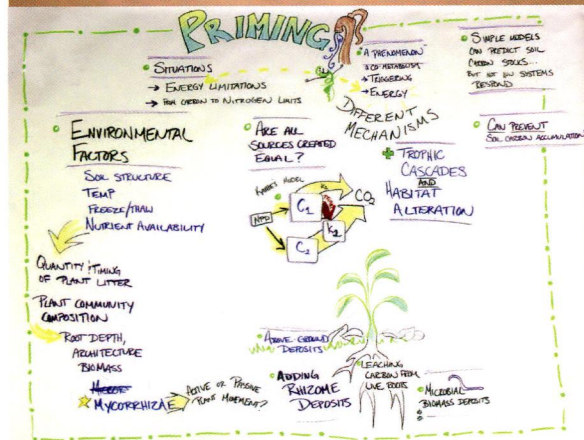 PRIMING
SITUATIONS
→ ENERGY LIMITATIONS
→ FROM CARBON TO NITROGEN LIMITS
A PHENOMENON
CO-METABOLISM
→ TRIGGERING
→ ENERGY
DIFFERENT
MECHANISMS
SIMPLE MODELS
CAN PREDICT SOIL
CARBON STOCKS...
BUT NOT HOW SYSTEMS
RESPOND
CAN PREVENT
SOIL CARBON ACCUMULATION
ENVIRONMENTAL
FACTORS
SOIL STRUCTURE
TEMP
FREEZE/THAW
NUTRIENT AVAILABILITY
ARE ALL
SOURCES CREATED
EQUAL?
MODEL
NPP
C1
C2
CO2
TROPHIC
CASCADES
AND
HABITAT
ALTERATION
QUANTITY & TIMING
OF PLANT LITTER
PLANT COMMUNITY
COMPOSITION
ROOT DEPTH,
ARCHITECTURE
BIOMASS
MYCORRHIZAE
ACTIVE OR PASSIVE
PLANT MOVEMENT?
ABOVE-GROUND
DEPOSITS
ADDING
RHIZOME
DEPOSITS
LEACHING
CARBON FROM
LIVE ROOTS
MICROBIAL
BIOMASS DEPOSITS